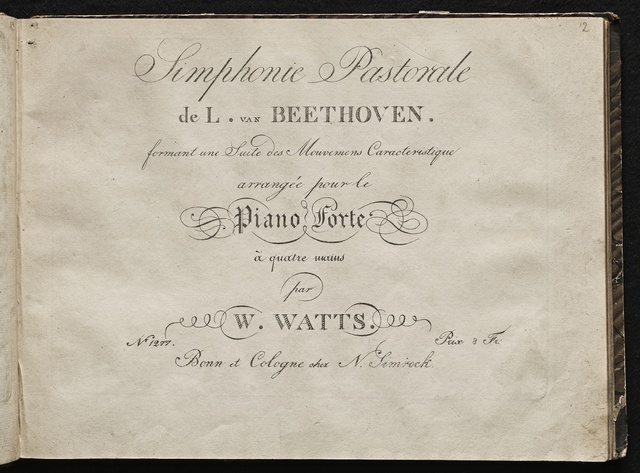 2
Simphonie Pastorale
de L. van BEETHOVEN.
formant une Suite des Mouvemens Caracteristique
arrangée pour le
Piano Forte
à quatre mains
par
W. WATTS.
No 1277. Prix 8 Fr.
Bonn et Cologne chez N. Simrock.